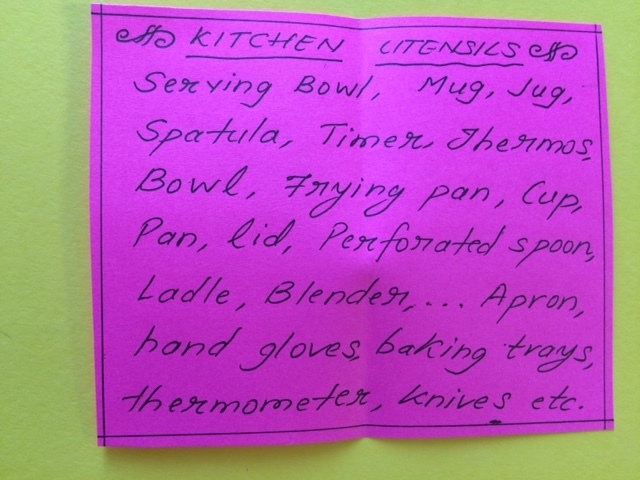 KITCHEN UTENSILS
Serving Bowl, Mug, Jug,
Spatula, Timer, Thermos,
Bowl, Frying pan, Cup,
Pan, lid, Perforated spoon,
Ladle, Blender,... Apron,
hand gloves, baking trays,
thermometer, knives etc.